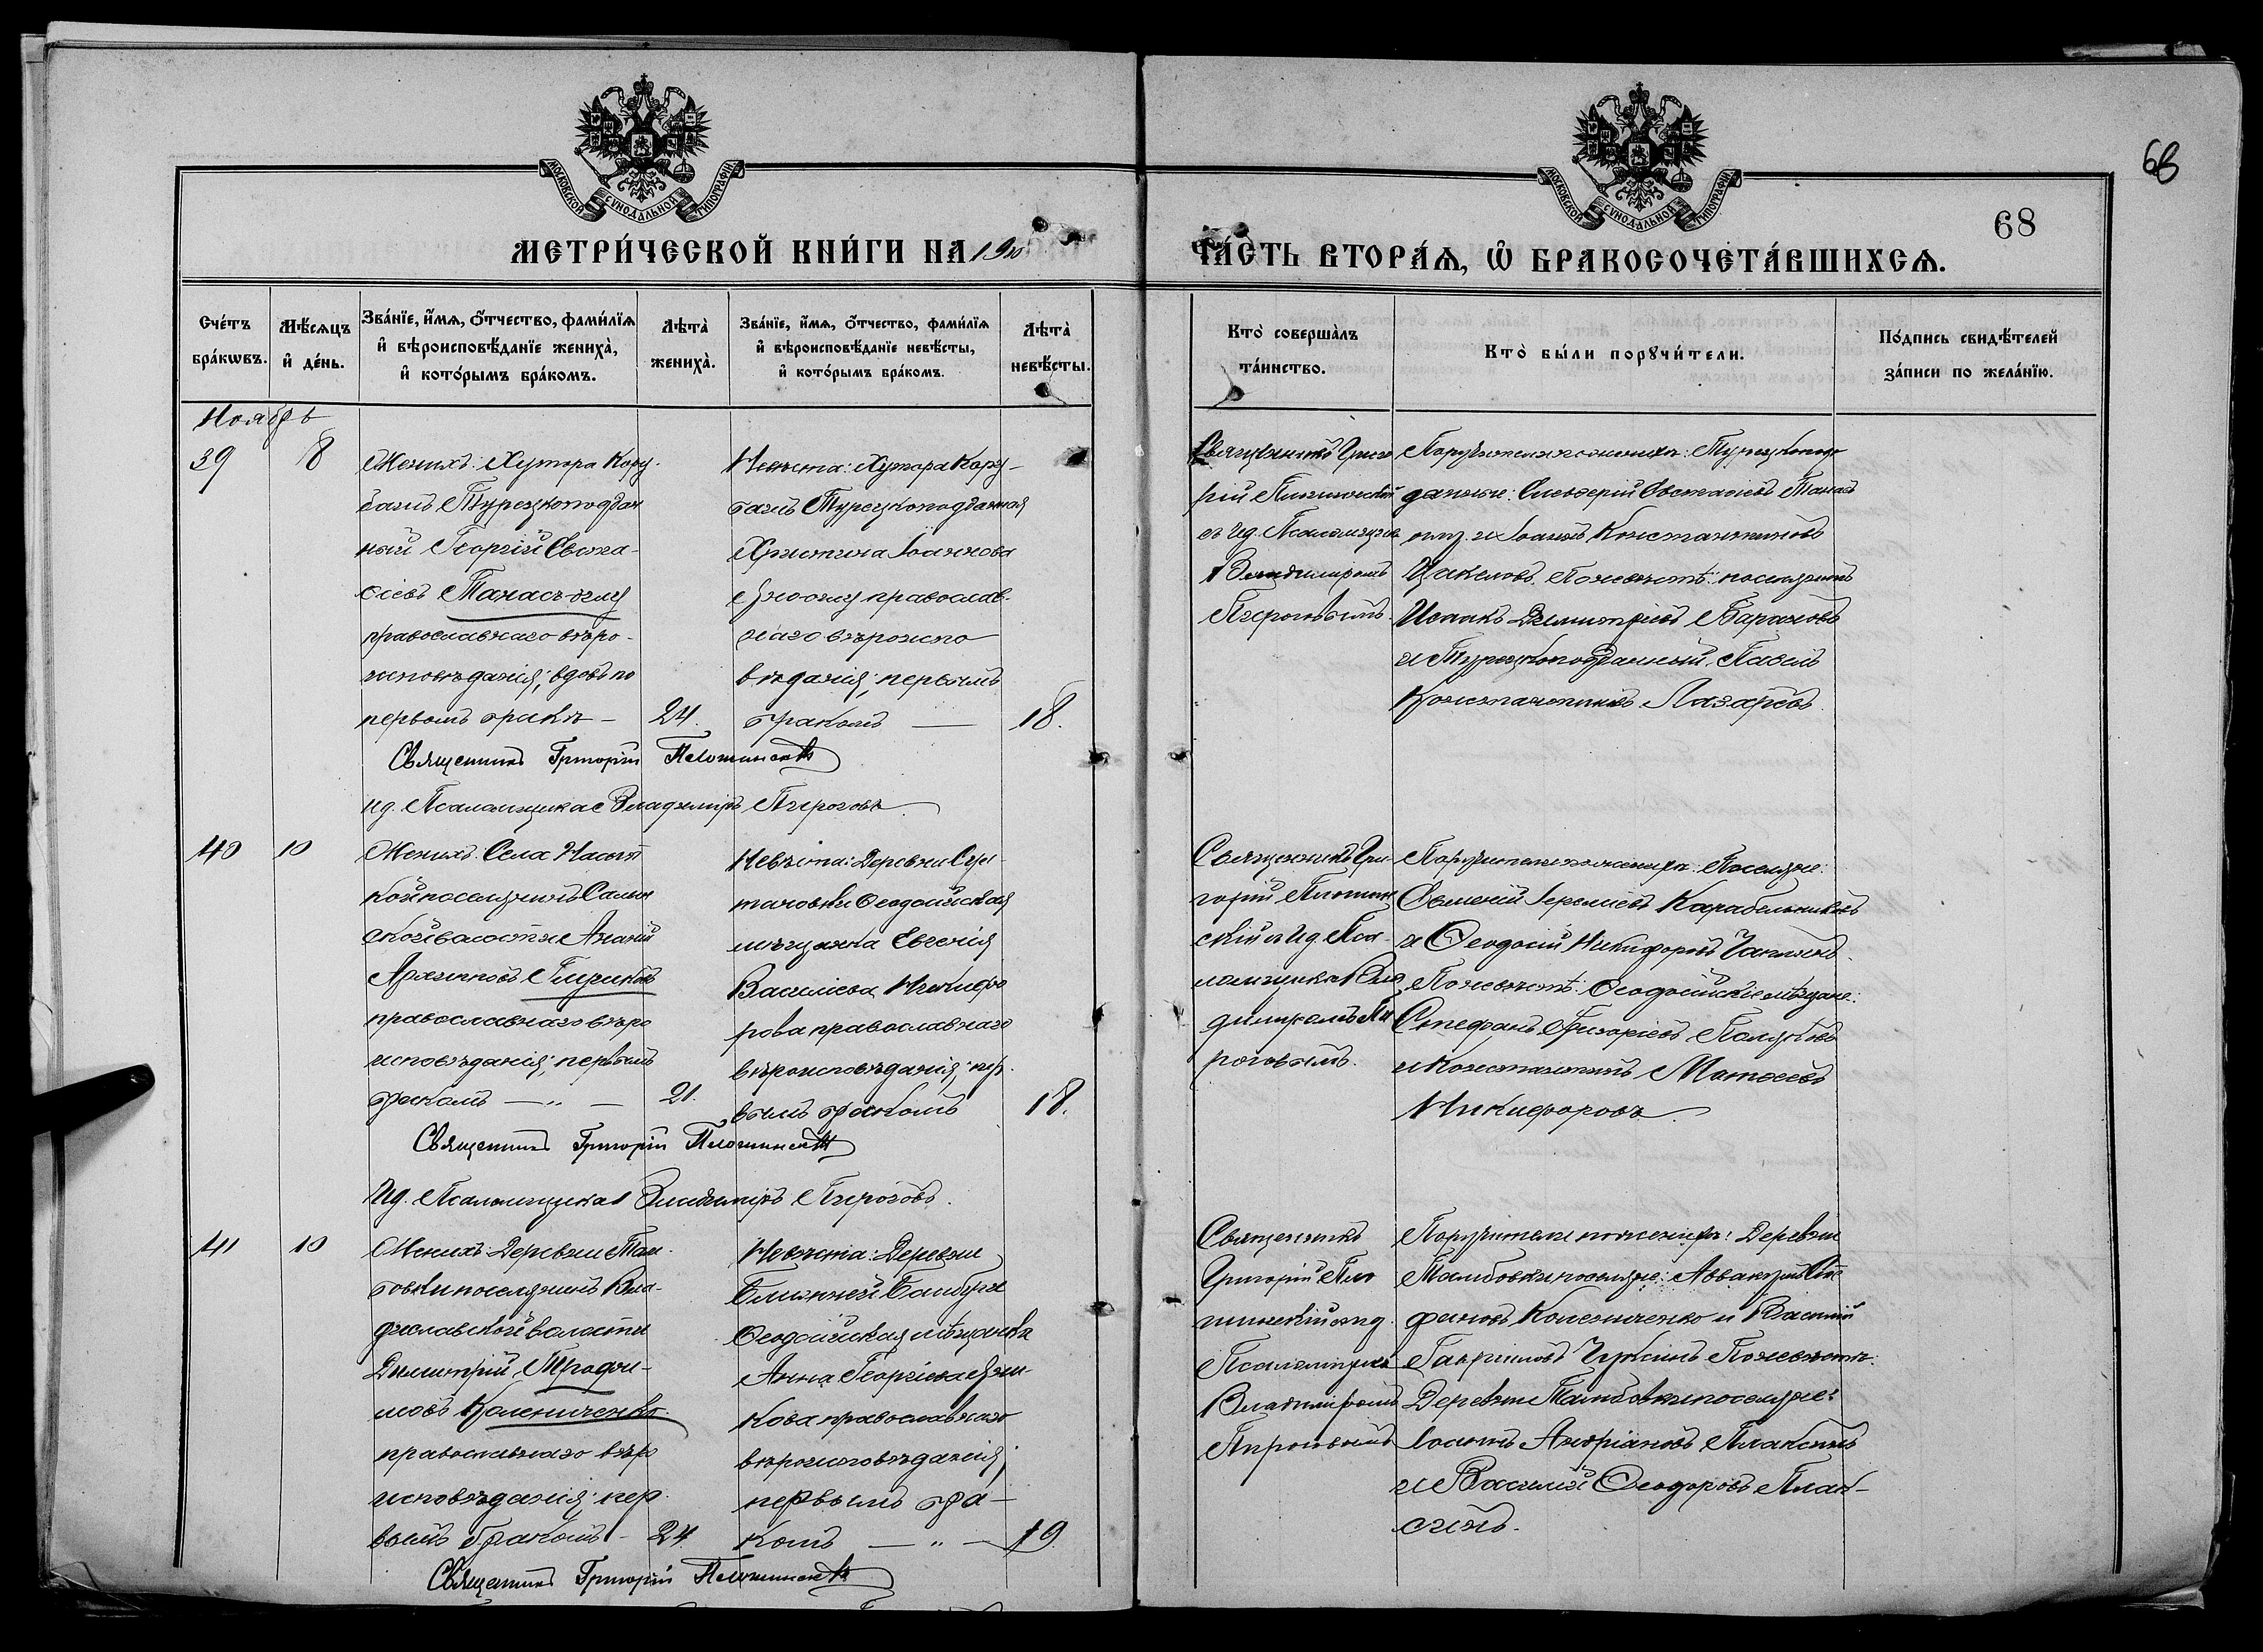 68
68
МОСКОВСКОЙ СѴНОДАЛЬНОЙ ТИПОГРАФІИ
МОСКОВСКОЙ СѴНОДАЛЬНОЙ ТИПОГРАФІИ
МЕТРИ́ЧЕСКОЙ КНИ́ГИ НА 1910
ЧА́СТЬ ВТОРА́Ѧ, Ѽ БРАКОСОЧЕТА́ВШИХСѦ.
Сче́тъ бра́кѡвъ.
Мѣ́сяцъ и҆ де́нь.
Зва́нїе, и҆́мѧ, о҆́тчество, фами́лїѧ и҆ вѣроисповѣ́данїе жениха̀, и҆ кото́рымъ бра́комъ.
Лѣта̀ жениха̀.
Зва́нїе, и҆́мѧ, о҆́тчество, фами́лїѧ и҆ вѣроисповѣ́данїе невѣ́сты, и҆ кото́рымъ бра́комъ.
Лѣта̀ невѣ́сты.
Кто̀ соверша́лъ та́инство.
Кто̀ бы́ли порꙋчи́тели.
По́дпись свидѣ́телей за́писи по жела́нїю.
Ноябрь
39
8
Женихъ: Хутора Кору-
башъ Турецкоподдан
ный Георгій Свята-
сіевъ Танасъ-оглу
православнаго вѣро-
исповѣданія; вдовъ по
первомъ бракѣ —
24.
Невѣста: Хутора Кору-
башъ Турецкоподданная
Христина Іоаннова
православ-
наго вѣроиспо
вѣданія; первымъ
бракомъ —
18.
Священникъ Григо
рій
и ид. Псаломщика
Владимиромъ
Пироговымъ.
Поручители по женихѣ: Турецкопод
данные: Танасъ
оглу и Іоаннъ Константиновъ
По невѣстѣ: поселянинъ
Исаакъ Димитріевъ Барановъ
и Турецкоподданный Павелъ
Константиновъ Лазаревъ
Священникъ Григорій Плотинскій
ид. Псаломщика Владимиръ Пироговъ.
40
10
Женихъ: Села Насып
кой поселянинъ Салын
ской волости Ананій
Архиповъ
православнаго вѣро
исповѣданія; первымъ
бракомъ — „ —
21.
Невѣста: Деревни Сул
тановки Ѳеодосійская
мѣщанка Евгенія
Василіева Никифо
рова православнаго
вѣроисповѣданія; пер-
вымъ бракомъ
18.
Священникъ Гри
горій Плотин
скій и ид. Пса
ломщика Вла
димиромъ Пи
роговымъ.
Поручители по женихѣ: Поселяне:
Іереміевъ Карабельниковъ
и Ѳеодосій Никифоровъ
По невѣстѣ: Ѳеодосійскіе мѣщане:
Стефанъ Григоріевъ
и Константинъ Матѳеевъ
Никифоровъ.
Священникъ Григорій Плотинскій
Ид. Псаломщика Владимиръ Пироговъ.
41
10
Женихъ: Деревни Там
бовки поселянинъ Вла-
диславской волости
Димитрій Трофи-
мовъ Колениченко
православнаго вѣро
исповѣданія; пер-
вымъ бракомъ —
24.
Невѣста: Деревни
Ближней Байбуги
Ѳеодосійская мѣщанка
Анна Георгіева
кова православнаго
вѣроисповѣданія;
первымъ бра-
комъ — „ —
19.
Священникъ
Григорій Пло
тинскій и ид.
Псаломщика
Владимиромъ
Пироговымъ
Поручители по женихѣ: Деревни
Тамбовки поселяне: Аввакумъ Сте
фановъ Колениченко и Василій
Гавріиловъ Чуркинъ По невѣстѣ:
Деревни Тамбовки поселяне:
Іоаннъ Андріановъ Плаксинъ
и Василій Ѳеодоровъ Плак-
синъ.
Священникъ Григорій Плотинскій